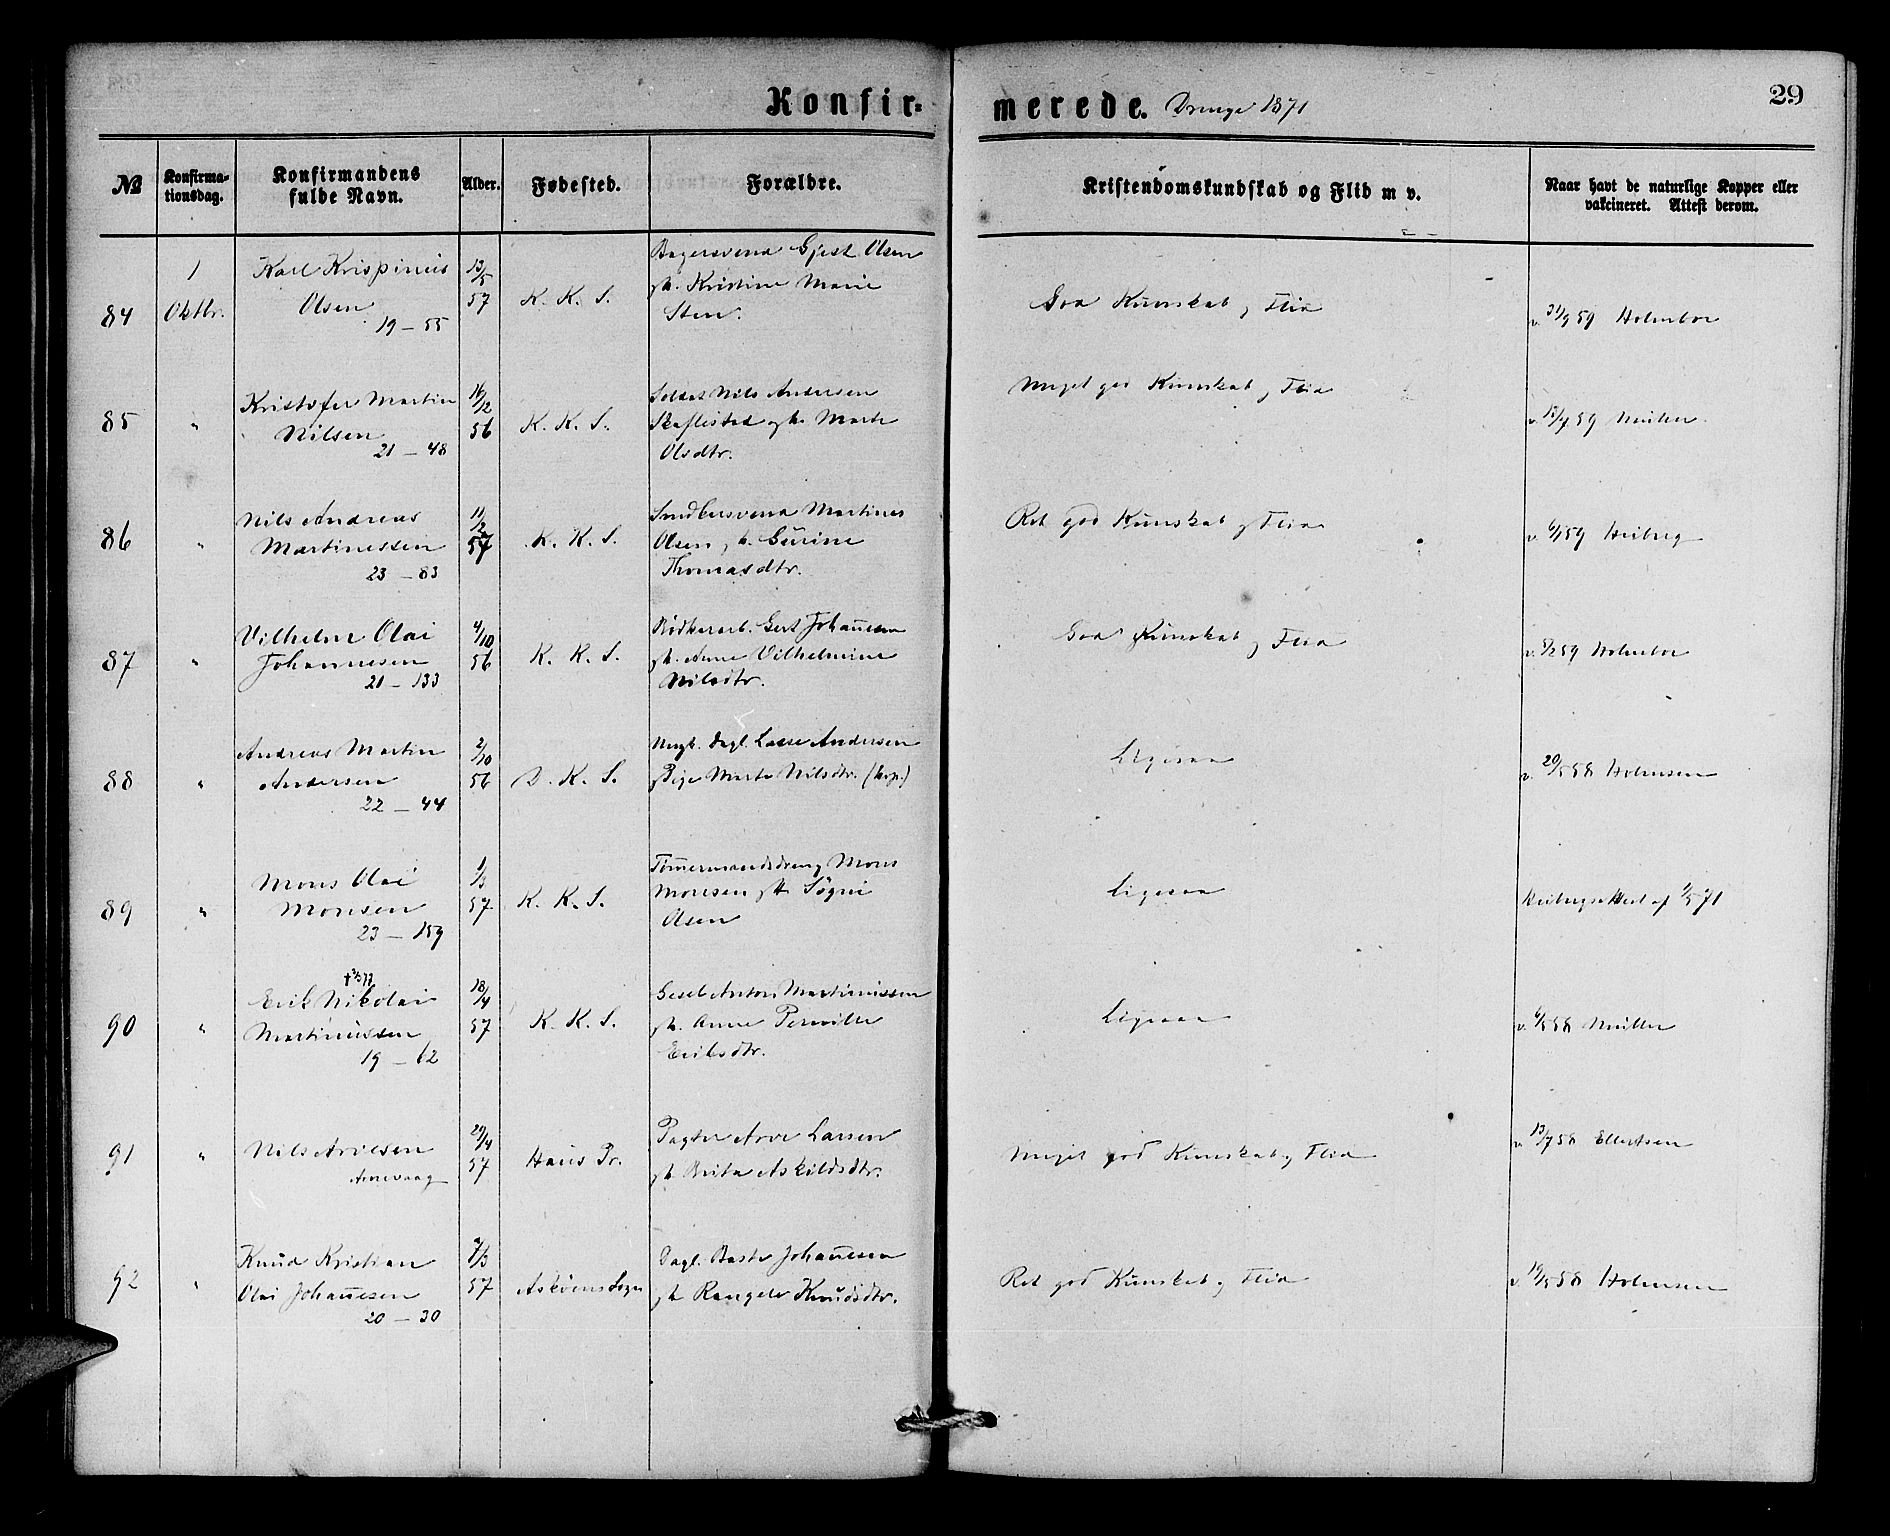 Konfir-
merede. Drenge 1871
29
№
Konfirma-
tionsdag.
Konfirmandens
fulde Navn.
Alder.
Fødested.
Forældre.
Kristendomskundskab og Flid m v.
Naar havt de naturlige Kopper eller
vakcineret. Attest derom.
84
1
Oktbr.
Karl Krispinus
Olsen
19 – 55
13/5
57
K. K. S.
Bagersvend Gjest Olsen
og h. Kristine Marie
Sten.
God Kunskab og Flid
v. 21/9 59 Holmboe
85
"
Kristofer Martin
Nilsen
21 – 48
16/12
56
K. K. S.
Soldat Nils Andersen
Skaflestad og h. Marte
Olsdtr.
Meget god Kunskab og Flid
v. 12/7 59 Müller.
86
"
Nils Andreas
Martinussen
23 – 83
11/2
57
K. K. S.
Smedsvend Martinus
Olsen og h. Gurine
Thomasdtr.
Ret god Kunskab og Flid
v. 6/1 59 Heiberg
87
"
Vilhelm Olai
Johannesen
21 – 133
4/10
56
K. K. S.
Bødkerarb. Gert Johannesen
og h. Anne Vilhelmine
Nilsdtr.
God Kunskab og Flid
v. 8/2 59 Holmboe
88
"
Andreas Martin
Andersen
22 – 44
2/10
56
D. K. S.
Ungk. Dagl. Lasse Andersen
og Pige Marta Nilsdtr. (kop.)
Ligesaa
v. 20/5 58 Holmsen
89
"
Mons Olai
Monsen
23 – 159
1/3
57
K. K. S.
Tømermandsdreng Mons
Monsen og h. Søgni
Olsen
Ligesaa
Heibergs Attest af 2/5 71
90
"
Erik Nikolai
Martinussen
19 – 62
18/4
57
K. K. S.
Gesel Anton Martinussen
og h. Anne Pernille
Eriksdtr.
Ligesaa
v. 6/5 58 Müller
91
"
Nils Arvesen
Arnevaag
29/4
57
Haus Pr.
Pagter Arve Larsen
og h. Brita Askildsdtr.
Meget god Kunskab og Flid
v. 13/7 58 Ellertsen
92
"
Knud Kristian
Olai Johannesen
20 – 30
7/3
57
Askøens Sogn
Dagl. Baste Johannesen
og h. Rangele Knudsdtr.
Ret god Kunskab og Flid
v. 19/5 58 Holmsen